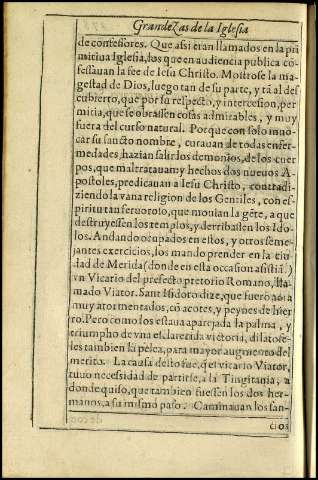 Grandezas de la Iglesia
de confessores. Que assi eran llamados en la pri
mitiua Iglesia, los que en audiencia publica cō-
fessauan la fee de Iesu Christo. Mostrose la ma-
gestad de Dios, luego tan de su parte, y tā al des
cubierto, que por su respecto, y intercesion, per
mitia, que se obrassen cosas admirables, y muy
fuera del curso natural. Porque con solo inuo-
car su sancto nombre, curauan de todas enfer-
medades, hazian salir los demonios, de los cuer
pos, que maltratauan y hechos dos nueuos A-
postoles, predicauan a Iesu Christo, contradi-
ziendo la vana religion de los Gentiles, con es-
piritu tan feruoroso, que mouian la gēte, a que
destruyessen los templos, y derribassen los Ido-
los. Andando ocupados en estos, y otros seme-
jantes exercicios, los mando prender en la ciu-
dad de Merida (donde en esta occasion asistia.)
vn Vicario del prefecto pretorio Romano, lla-
mado Viator. Sant Isidoro dize, que fuerō aqui
muy atormentados, cō açotes, y peynes de hier
ro. Pero como los estaua aparejada la palma, y
triumpho de vna esclarecida victoria, dilatose-
les tambien la pelea, para mayor augmento del
merito. La causa desto fue, q̄ el vicario Viator,
tuuo necessidad de partirse, a la Tingitania, a
donde quiso, que tambien fuessen los dos her-
manos, a su mismo paso. Caminauan los san-
ctos